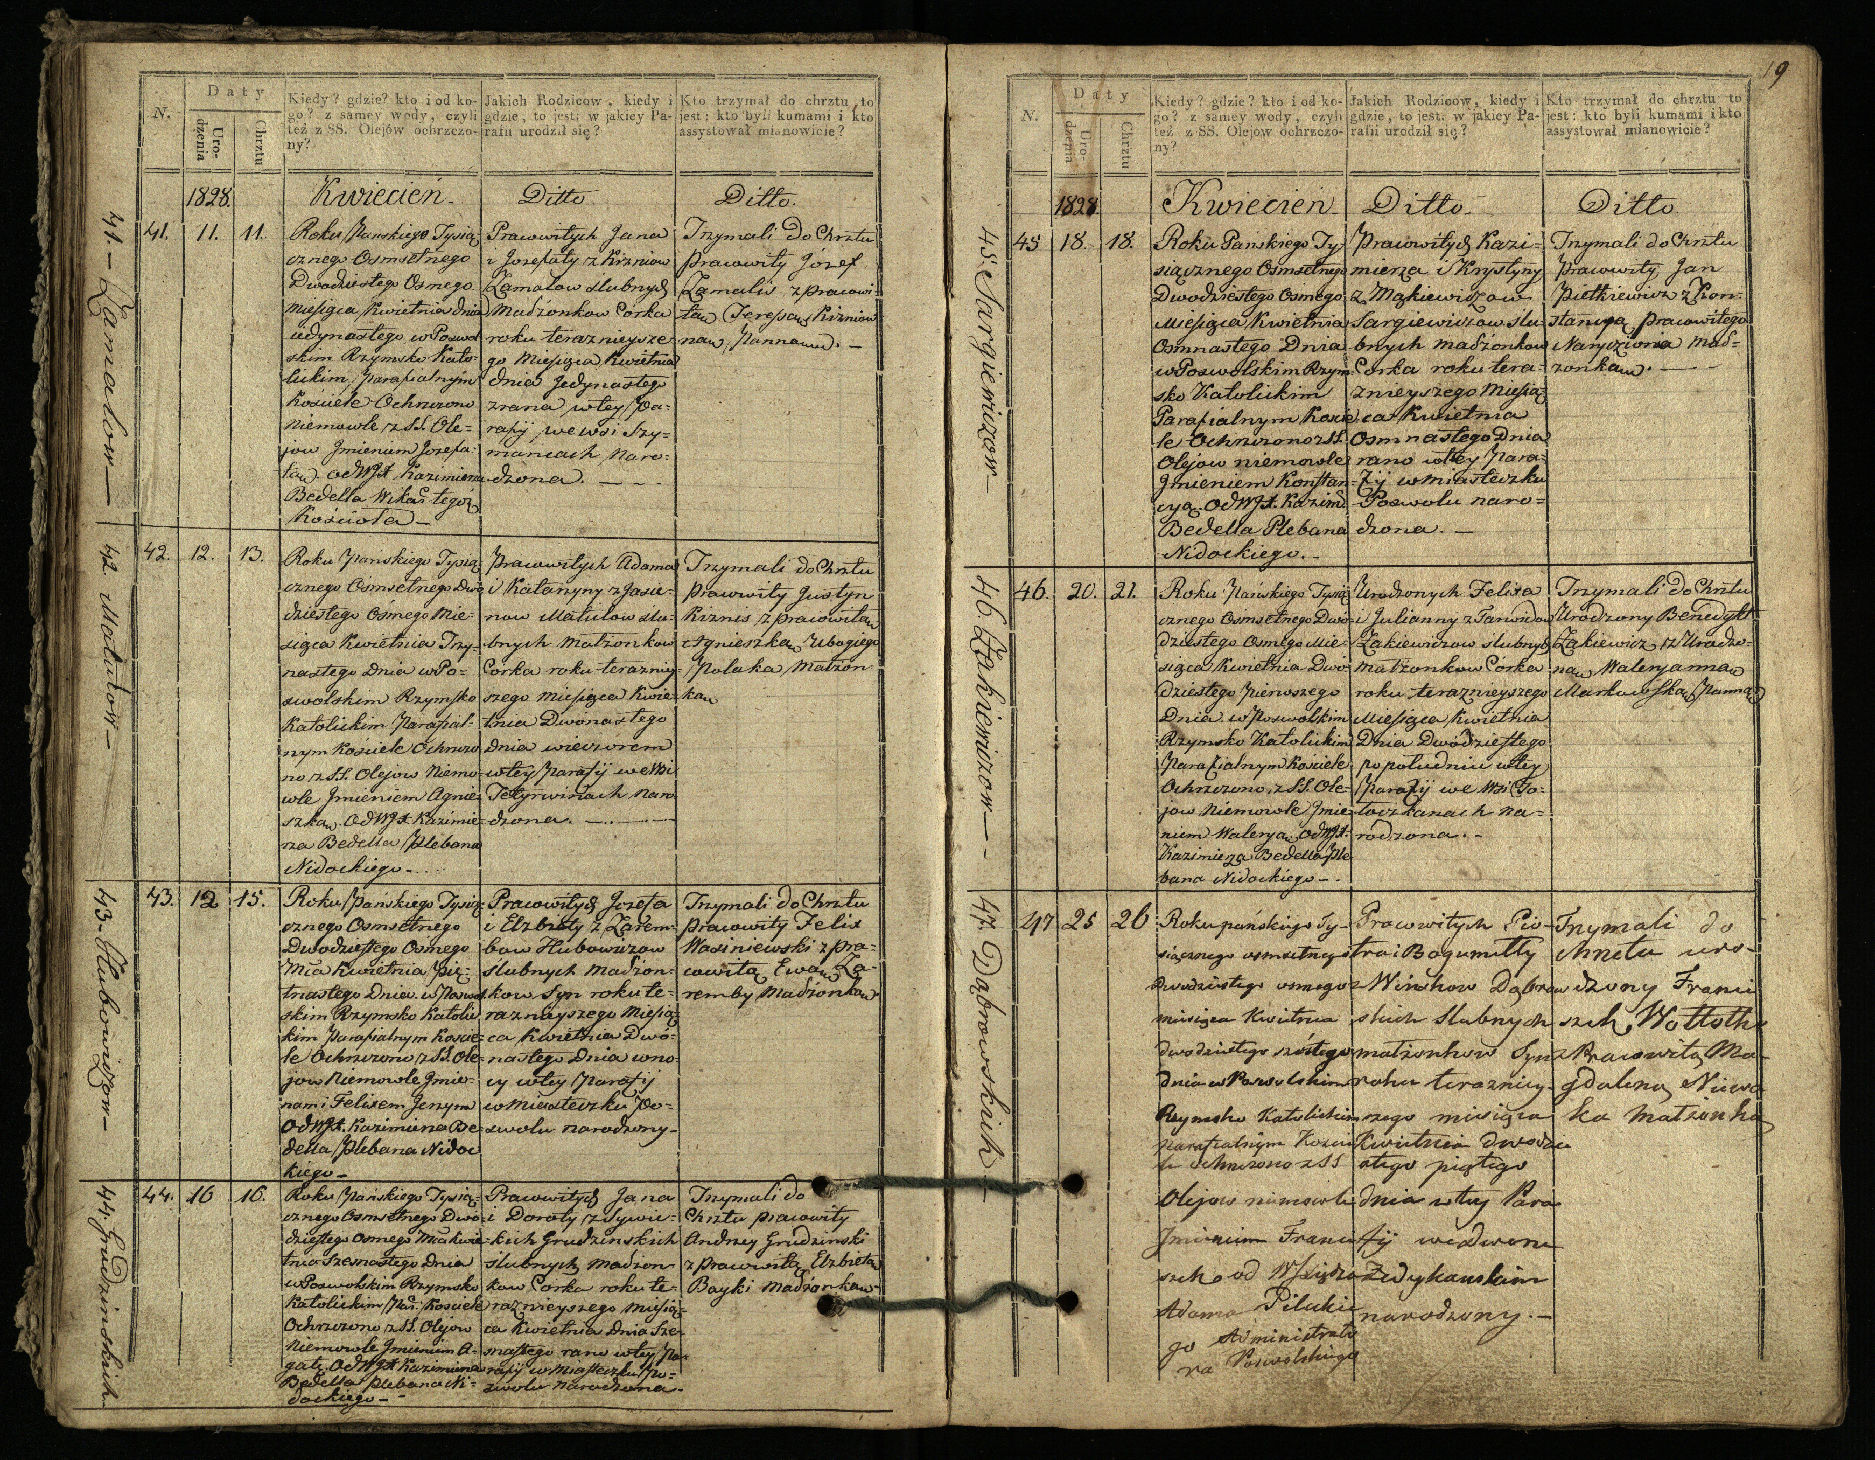 N.
Daty
Urodzenia
Chrztu
Kiedy? gdzie? kto i od ko-
go? z samey wody, czyli
też z SS. Olejów ochrzczo-
ny?
Jakich Rodzicow, kiedy i
gdzie, to jest: w jakiey Pa-
rafii urodził się?
Kto trzymał do chrztu, to
jest: kto byli kumami i kto
assystował mianowicie?
1828.
Kwiecień
Ditto
Ditto.
41. Zamalow
41.
11.
11.
Roku Pańskiego Tysią
cznego Osmsetnego
Dwodziestego Osmego
Miesiąca Kwietnia dnia
jedynastego w Poswol
skim Rzymsko Kato-
lickim Parafialnym
Kosciele Ochrzczono
Niemowle z SS. Ole-
jow Jmieniem Jozefa-
tą od WJX Kazimierza
Bedella Wikar. tegoż
Kościoła
Pracowitych Jana
i Jozefaty z Kiżniow
Zamalow slubnych
Madżonkow Corka
roku teraznieysze-
go Miesiąca Kwietnia
dnia Jedynastego
zrana w tey Pa-
rafij we wsi Szy-
maniach naro-
dzona.
Trzymali do Chrztu
pracowity Jozef
Zamalis z pracowi-
tą Teressą Kizniow
ną Panną.
42 Matulow
42.
12.
13.
Roku Pańskiego Tysią
cznego Osmsetnego Dwo
dziestego Osmego Mie-
siąca Kwietnia Trzy-
nastego dnia w Po-
swolskim Rzymsko
Katolickim Parafial-
nym Kosciele Ochrzczo
no z SS. Olejow Niemo-
wle Jmieniem Agnie-
szką. Od WJX Kazimie-
rza Bedella Plebana
Nidockiego
Pracowitych Adama
i Katarzyny z Jasie-
now Matulow slu-
bnych Małżonkow
Corka roku terazniey-
szego Miesiąca Kwie-
tnia Dwonastego
dnia wieczorem
w tey Parafij we Wsi
Tetyrwiniach naro
dzona.
Trzymali do Chrztu
Pracowity Justyn
Kiznis z pracowitą
Agnieszką Ubogiego
Polaka Małżon
ką
43. Hubowiczow
43.
12
15.
Roku Pańskiego Tysią
cznego Osmsetnego
Dwodziestego Osmego
Mca Kwietnia Pię-
tnastego Dnia w Poswol
skim Rzymsko Katolic
kim Parafialnym Koscie-
le Ochrzczono z SS. Ole-
jow Niemowle Jmie-
nami Felixem Jerzym
Od WJX. Kazimierza Be-
della Plebana Nidoc
kiego
Pracowitych Jozefa
i Elzbiety z Zarem-
bow Hubowiczow
slubnych Madżon-
kow Syn roku te-
raznieyszego Miesią-
ca Kwietnia Dwo-
nastego Dnia w no-
cy w tey Parafij
w miasteczku Po-
swolu narodzony
Trzymali do Chrztu
pracowity Felix
Wasiniewski z pra-
cowitą Ewą Za-
remby Madżonką
44. Grudzinskich
44.
16
16.
Roku Pańskiego Tysią-
cznego Osmsetnego Dwo-
dziestego Osmego Mca Kwie-
tnia Szesnastego Dnia
w Poswolskim Rzymsko
Katolickim Par. Kosciele
Ochrzczono z SS. Olejow
Niemowle Jmieniem A-
gatą. Od WJX Kazimierza
Bedella Plebana Ni-
dockiego
Pracowitych Jana
i Doroty z Sywic-
kich Grudzinskich
slubnych Madżon
kow Corka roku te-
raznieyszego Miesią-
ca Kwietnia Dnia Sze-
snastego rano w tey Pa-
rafij w Miasteczku Po-
swolu narodzona
Trzymali do
Chrztu pracowity
Andrzey Grudzinski
z pracowitą Elzbietą
Bayki Madżonką
19
N.
Daty
Urodzenia
Chrztu
Kiedy? gdzie? kto i od ko-
go? z samey wody, czyli
też z SS. Olejow ochrzczo-
ny?
Jakich Rodzicow, kiedy i
gdzie, to jest: w jakiey Pa-
rafii urodził się?
Kto trzymał do chrztu to
jest: kto byli kumami i kto
assystował mianowicie?
1828
Kwiecień
Ditto
Ditto
45 Sargiewiczow
45
18.
18.
Roku Pańskiego Ty-
siącznego Osmsetnego
Dwodziestego Osmego
Miesiąca Kwietnia
Osmnastego Dnia
w Poswolskim Rzym-
sko Katolickim
Parafialnym Koscie
le Ochrzczono z SS.
Olejow niemowle
Jmieniem Konstan-
cyą. Od WJX. Kazimi.
Bedella Plebana
Nidockiego.
Pracowitych Kazi-
mierza i Krystyny
z Mąkiewiczow
Sargiewiczow slu-
bnych madżonkow
Corka roku tera-
znieyszego Miesią-
ca Kwietnia
Osmnastego Dnia
rano w tey Para-
fij w miasteczku
Poswolu naro-
dzona.
Trzymali do Chrztu
Pracowity Jan
Pietkiewicz z Kon-
stancyą pracowitego
Narydzionia Mad-
zonką.
46. Zakiewiczow
46.
20.
21.
Roku Pańskiego Tysią
cznego Osmsetnego Dwo-
dziestego Osmego Mie-
siąca Kwietnia Dwo-
dziestego Pierwszego
Dnia w Poswolskim
Rzymsko Katolickim
Parafialnym Kosciele
Ochrzczono z SS. Ole-
jow Niemowle Jmie-
niem Waleryą. Od WJX.
Kazimierza Bedella Ple
bana Nidockiego
Urodzonych Felixa
i Julianny z
Zakiewiczow slubnych
małżonkow Corka
roku teraznieyszego
Miesiąca Kwietnia
Dnia Dwodziestego
po południu w tey
Parafij we Wsi To-
toczkanach na-
rodzona.
Trzymali do Chrztu
Urodzony Benedykt
Zakiewicz z Urodzo-
ną Waleryanną
Markowską Panną
47. Dąbrowskich
47
25
26
Roku pańskiego Ty-
siącznego osmsetnego
dwodziestego osmego
miesiąca Kwietnia
dwodziestego szóstego
dnia w Poswolskim
Rzymsko Katolickim
parafialnym Koscie
le ochrzczono z SS
Olejow niemowle
Jmieniem Franci
szka od W Xiędza
Adama Pilukie
go Administrato
ra Poswolskiego
Pracowitych Pio-
tra i Bogumiłły
z Winchow Dąbrow
skich Slubnych
małżonkow Syn
roku teraznięy-
szego miesiąca
Kwietnia dwodzie
stego piątego
dnia w tey Para
fij we dworze
Zedykanskim
narodzony.
Trzymali do
chrzta uro-
dzony Franci
szek Wołłotk
z Pracowitą Ma-
gdaleną
ka Małżonką